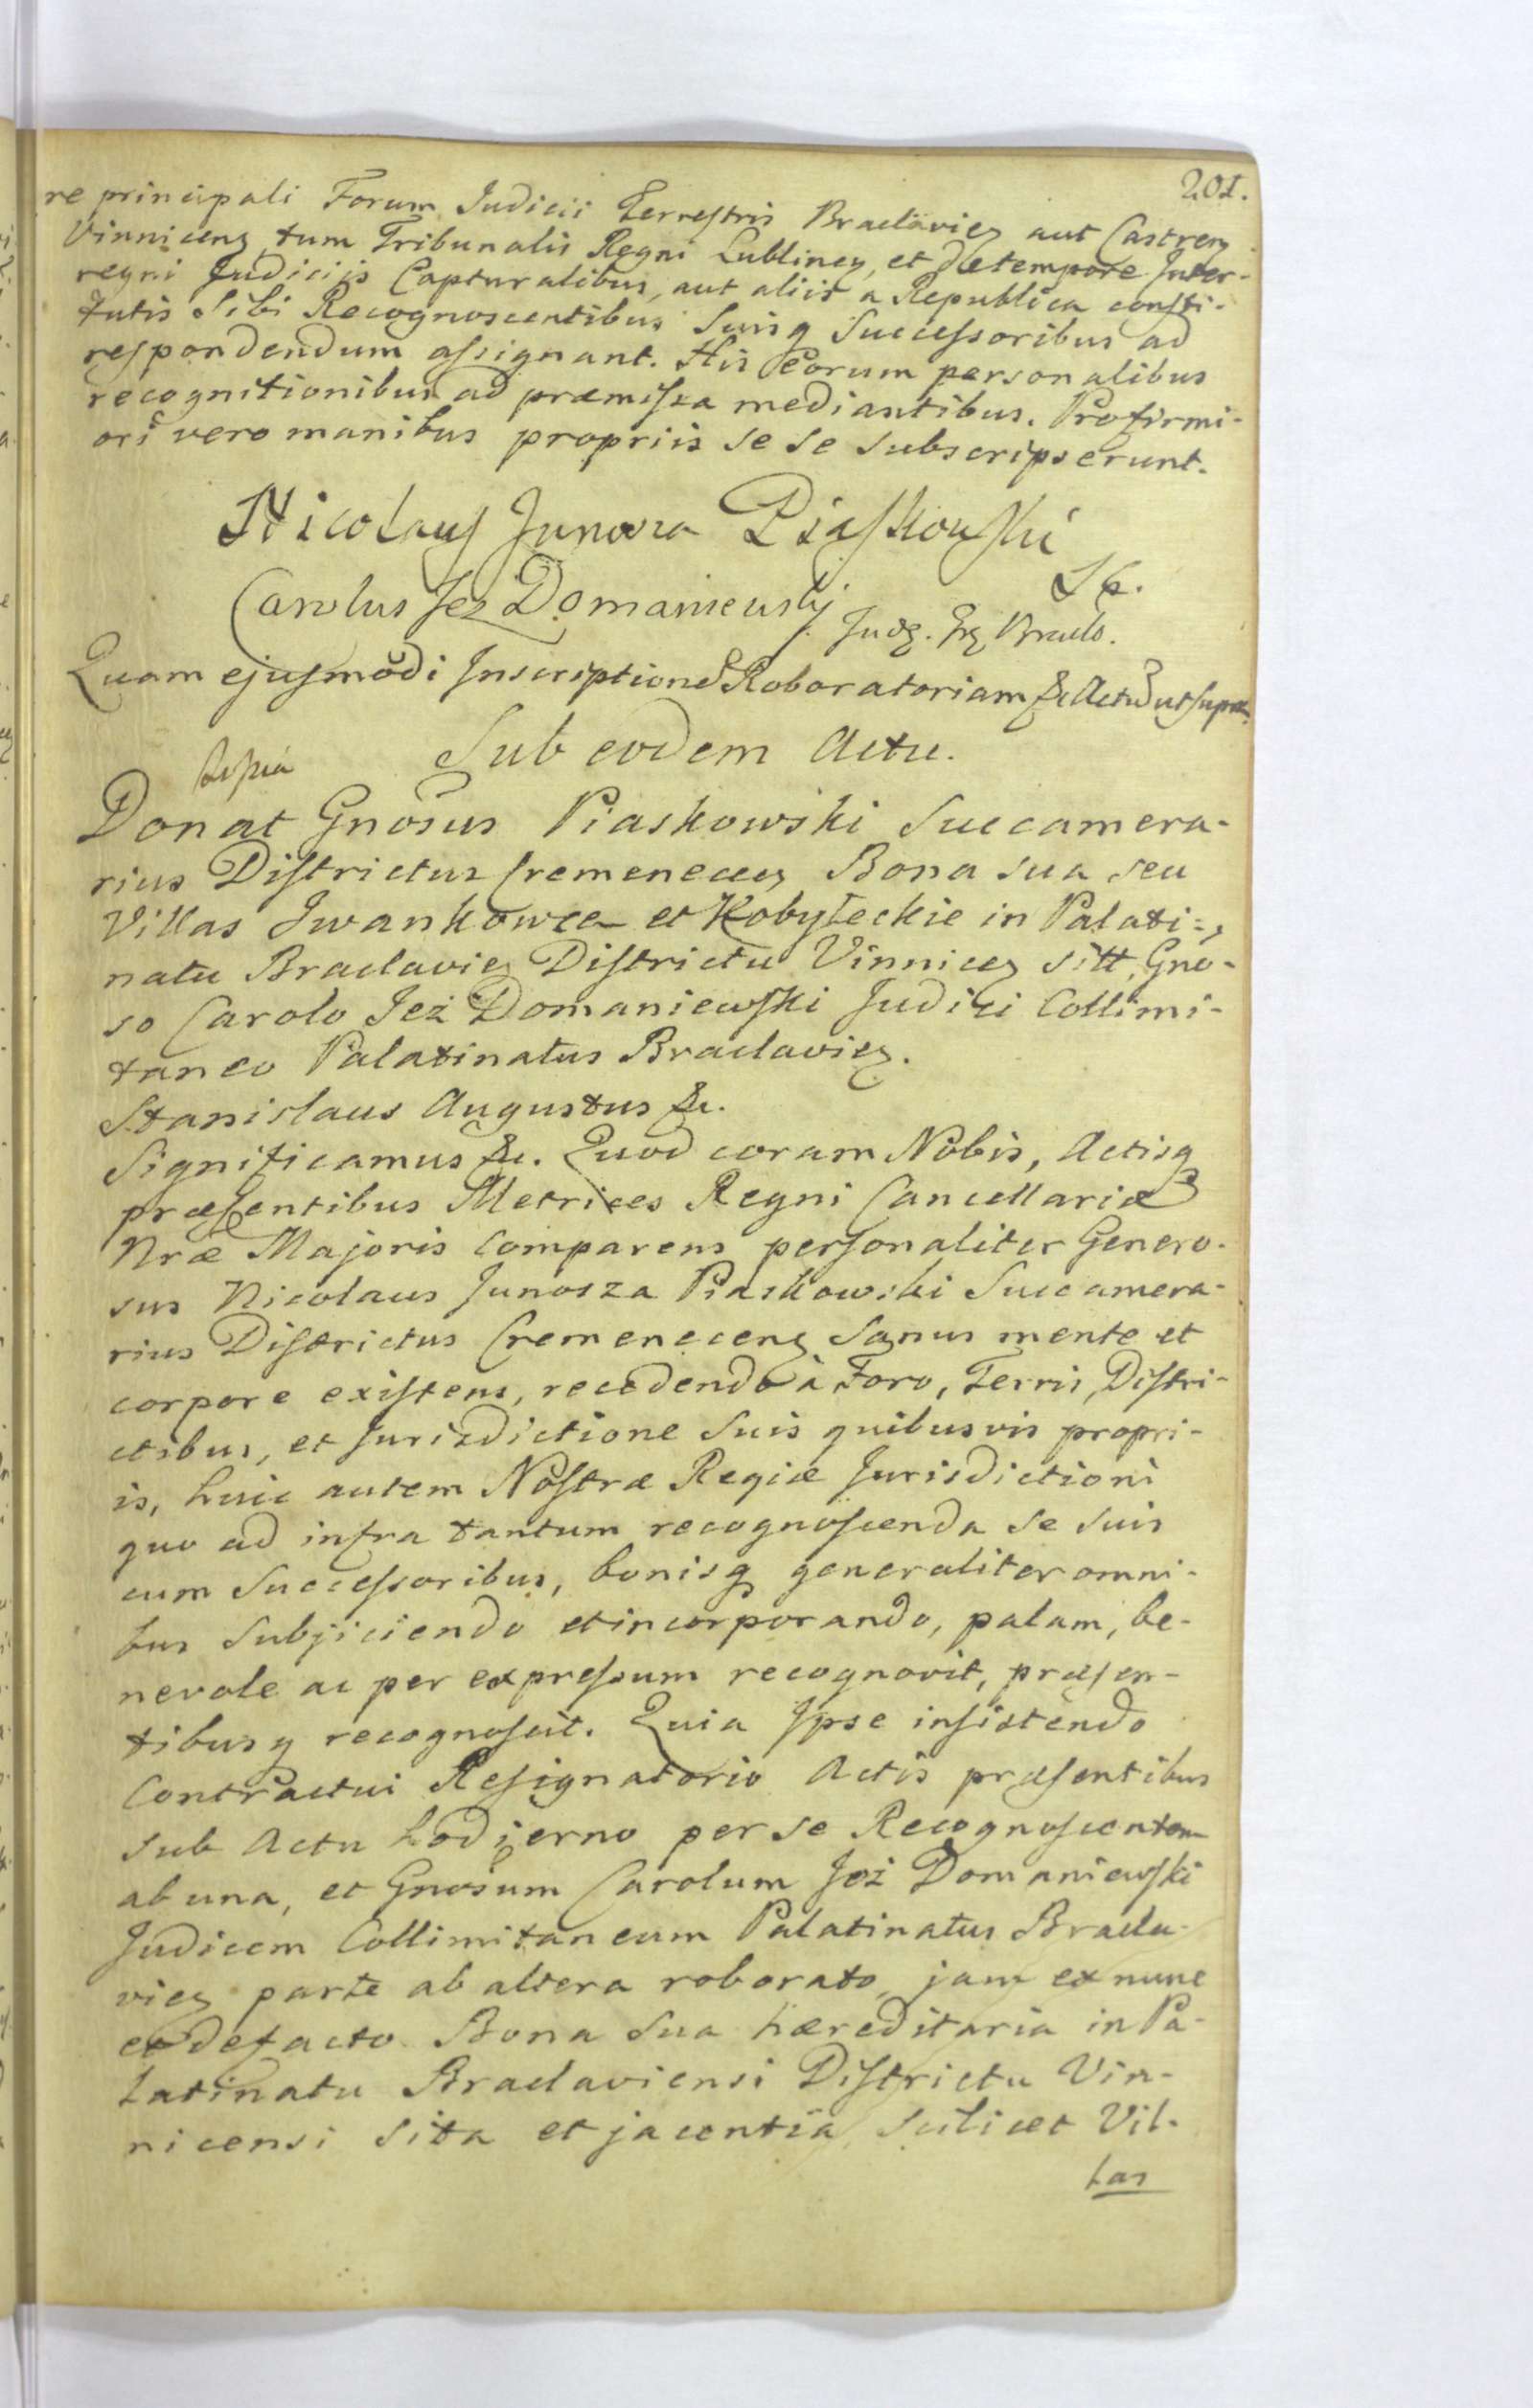 201.
re principali Forum Judicii Terrestris Braclavien aut Castren
Vinnicens, tum Tribunalis Regni Lublinen, et de tempore Inter-
regni Judiciis Capturalibus, aut aliis a Republica consti-
tutis Sibi Recognoscentibus Suisq Successoribus ad
respondendum assignant. His Eorum personalibus
recognitionibus ad præmissa mediantibus. Pro firmi-
ori vero manibus propriis se se subscripserunt.
Nicolaus Junosza Piaskowski
Carolus Jez Domaniewski
Quam ejusmodi Inscriptione Roboratoriam &c Actu ut supra
Sub eodem Actu.
Donat Gnosus Piaskowski Succamera-
rius Districtus Cremenecen Bona sua seu
Villas Iwankowce et Kobyleckie in Palati-
natu Braclavien Districtu Vinnicen sitt, Gno-
so Carolo Jeż Domaniewski Judici Collimi-
taneo Palatinatus Braclavien.
Stanislaus Augustus &c.
Significamus &c. Quod coram Nobis, Actisq
præsentibus Metrices Regni Cancellariæ
Nræ Majoris Comparens personaliter Genero-
sus Nicolaus Junosza Piaskowski Succamera-
rius Districtus Cremenecens Sanus mente et
corpore existens, recedendo à Foro, Terris, Distri-
ctibus, et Jurisdictione Suis quibusvis propri-
is, huic autem Nostræ Regiæ Jurisdictioni
quo ad infra tantum recognoscenda se suis
cum Successoribus, bonisq generaliter omni-
bus Subjiciendo et incorporando, palam, be-
nevole ac per expressum recognovit, præsen-
tibusq recognoscit. Quia Ipse insistendo
Contractui Resignatorio Actis præsentibus
sub Actu hodierno per se Recognoscentem
ab una, et Gnosum Carolum Jeż Domaniewski
Judicem Collimitaneum Palatinatus Bracla-
vien parte ab altera roborato, jam ex nunc
et de facto Bona Sua hæreditaria in Pa-
latinatu Braclaviensi Districtu Vin-
nicensi Sita et jacentia, Scilicet Vil-
las